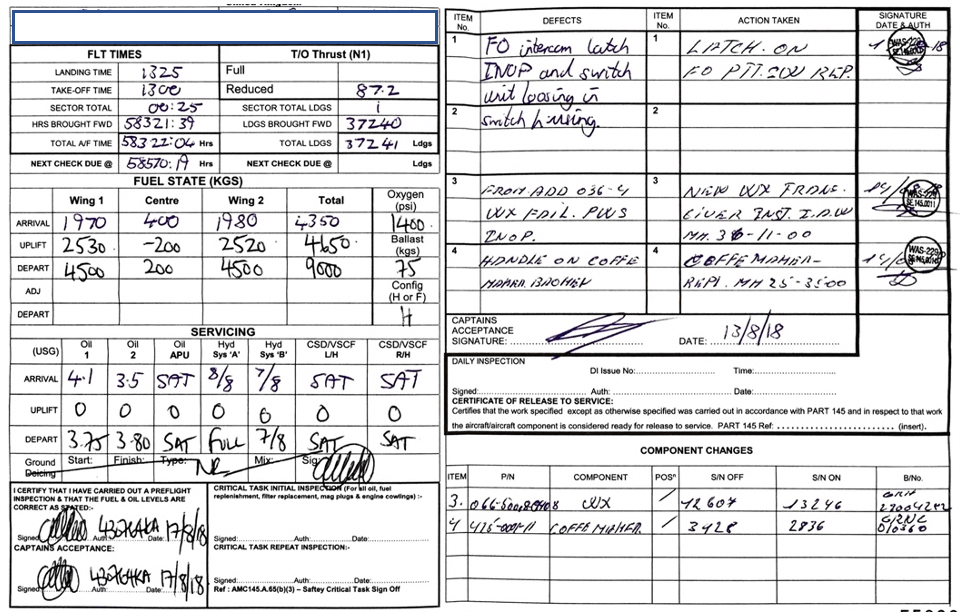 FLT TIMES T/O Thrust (N1)
LANDING TIME 1325 Full
TAKE-OFF TIME 1300 Reduced 87.2
SECTOR TOTAL 00:25 SECTOR TOTAL LDGS 1
HRS BROUGHT FWD 58321:39 LDGS BROUGHT FWD 37240
TOTAL A/F TIME 58322:04 Hrs TOTAL LDGS 37241 Ldgs
NEXT CHECK DUE @ 58570:19 Hrs NEXT CHECK DUE @ Ldgs
FUEL STATE (KGS)
Wing 1 Centre Wing 2 Total Oxygen (psi)
ARRIVAL 1970 400 1980 4350 1400
UPLIFT 2530 -200 2520 4650 Ballast (kgs)
DEPART 4500 200 4500 9000 75
ADJ Config (H or F)
DEPART H
SERVICING
(USG) Oil 1 Oil 2 Oil APU Hyd Sys 'A' Hyd Sys 'B' CSD/VSCF L/H CSD/VSCF R/H
ARRIVAL 4.1 3.5 SAT 8/8 7/8 SAT SAT
UPLIFT 0 0 0 0 0 0 0
DEPART 3.75 3.80 SAT FULL 7/8 SAT SAT
Ground Deicing Start: Finish: Type: Mix: Sig
I CERTIFY THAT I HAVE CARRIED OUT A PREFLIGHT
INSPECTION & THAT THE FUEL & OIL LEVELS ARE
CORRECT AS STATED:-
Signed Auth 430764KA Date: 17/8/18
CAPTAINS ACCEPTANCE:
Signed Auth 430764KA Date: 17/8/18
CRITICAL TASK INITIAL INSPECTION (For all oil, fuel
replenishment, filter replacement, mag plugs & engine cowlings) :-
Signed: Auth: Date:
CRITICAL TASK REPEAT INSPECTION:-
Signed: Auth: Date:
Ref : AMC145.A.65(b)(3) – Saftey Critical Task Sign Off
ITEM No. DEFECTS ITEM No. ACTION TAKEN SIGNATURE DATE & AUTH
1 FO intercom latch 1 LATCH ON
INOP and switch FO PTT. SW REP.
unit loosing in
2 switch housing. 2
3 FROM ADD 036-4 3 NEW WX TRANS.
WX FAIL. PWS CIEVER INST. I.A.W
INOP. MM. 36-11-00
4 HANDLE ON COFFE 4 COFFE MAHER
MAHRA BROHEN REPL. MM 25-35-00
CAPTAINS ACCEPTANCE SIGNATURE: DATE: 13/8/18
DAILY INSPECTION
DI Issue No: Time:
Signed: Auth: Date:
CERTIFICATE OF RELEASE TO SERVICE:
Certifies that the work specified except as otherwise specified was carried out in accordance with PART 145 and in respect to that work
the aircraft/aircraft component is considered ready for release to service. PART 145 Ref: (insert).
COMPONENT CHANGES
ITEM P/N COMPONENT POSⁿ S/N OFF S/N ON B/No.
3. WX / 12607 13246
4 COFFE MAHER / 3428 2836